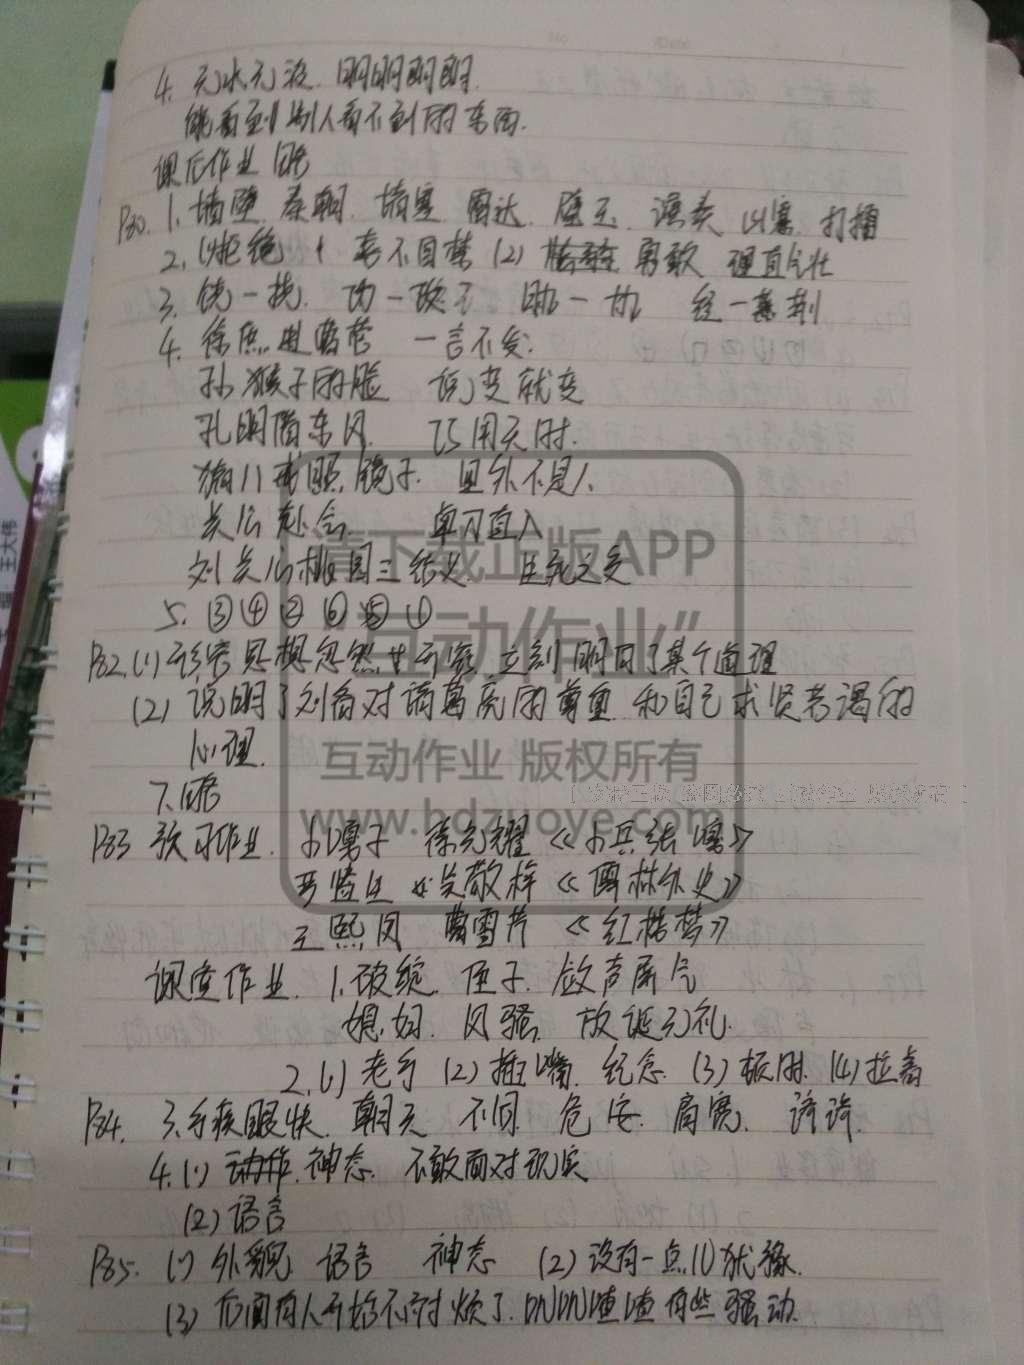 4. 无水无波 明明朗朗
能看到别人看不到的东西.
课后作业 略
P80. 1. 墙壁 秦朝 堵塞 雷达 隆玉 演奏 山寨 打播
2. (1)拒绝 情不自禁 (2) 勇敢 理直气壮
3. 绕一挠 功一攻 助一协
4. 徐庶进曹营 一言不发.
孙猴子的脸 说变就变
孔明借东风 巧用天时.
猪八戒照镜子 里外不是人
关公赴会 单刀直入
刘关张桃园三结义 生死之交
5. ③④②⑥⑤①
P82. (1) 形容思想忽然开窍 立刻明白了某个道理
(2) 说明了刘备对诸葛亮的尊重 和自己求贤若渴的
心理.
7. 略
P83 预习作业. 小嘎子 徐光耀《小兵张嘎》
严监生 吴敬梓《儒林外史》
王熙凤 曹雪芹《红楼梦》
课堂作业. 1. 破绽 侄子 敛声屏气
媳妇 风骚 放诞无礼.
2. (1) 老子 (2) 推嘴 纪念 (3) 板 (4) 拉
P84. 3. 手疾眼快 朝天 不同 危 高 许许.
4. (1) 动作 神态 不敢面对现实
(2) 语言
P85. (1) 外貌 语言 神态 (2) 没有一点儿犹豫.
(3) 后面有人开始不耐烦了 叽叽喳喳有些骚动.
请下载正版APP
“互动作业”
互动作业 版权所有
www.hdzuoye.com